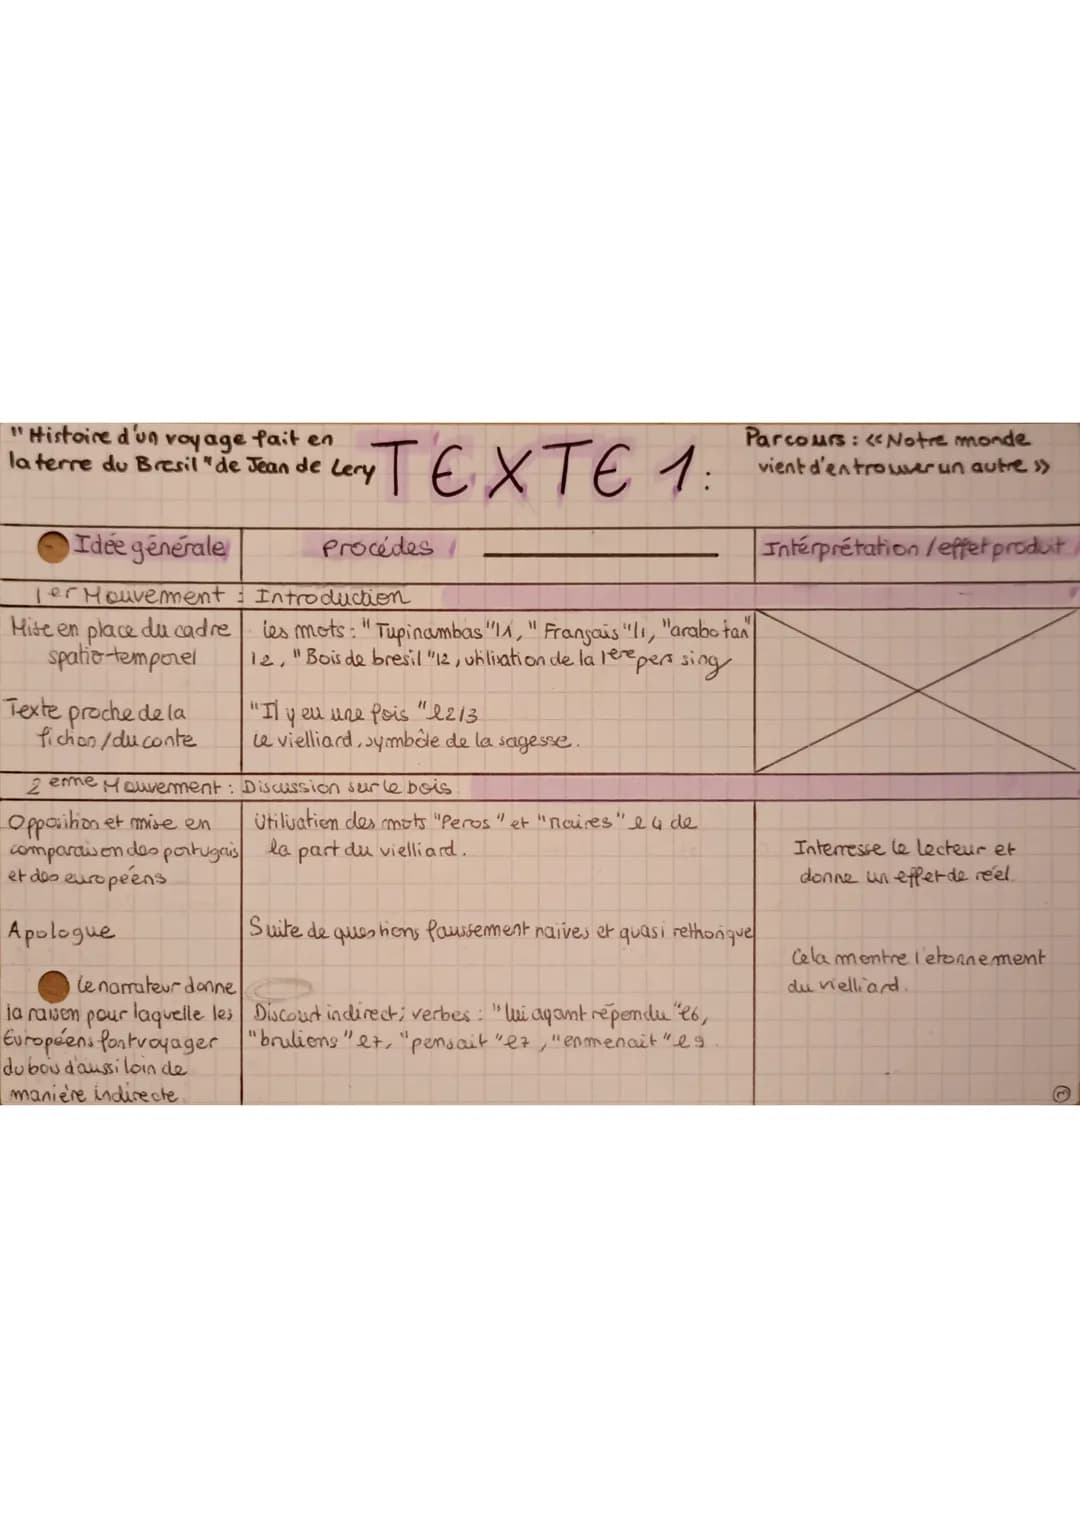 "Histoire d'un voyage fait en
la terre du Bresil" de Jean de Lery
TEXTE 1:
Parcours : << Notre monde
vient d'en trouver un autre >>
Idée générale
Procédés
Intérprétation / effet produit
1er Mouvement : Introduction
Mise en place du cadre
spatio-temporel
les mots : "Tupinambas "l1, " Français "l1, "arabotan"
l2, "Bois de bresil "l2, utilisation de la 1ere pers sing
Texte proche de la
fiction / du conte
"Il y eu une fois " l2/3
Le vielliard, symbôle de la sagesse.
2 eme Mouvement : Discussion sur le bois
Opposition et mise en
comparaison des portugais
et des européens
Utilisation des mots "Peros" et "naires" l4 de
la part du vielliard.
Interresse le lecteur et
donne un effet de réel.
Apologue
Suite de questions faussement naïves et quasi rethorique
Cela montre l'etonnement
du vielliard.
Le narrateur donne
la raison pour laquelle les
Européens font voyager
du bois d'aussi loin de
manière indirecte.
Discourt indirect; verbes : "lui ayant répondu "l6,
"brulions" l7, "pensait "l7, "enmenait" l9.